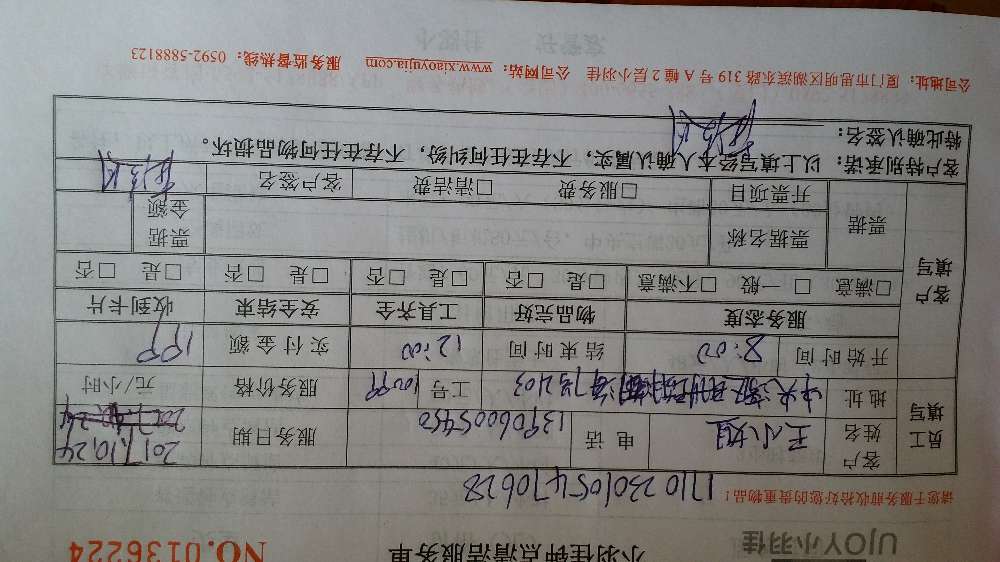 UJOY小羽佳 小羽佳钟点清洁服务单 NO.0136224
请您于服务前收拾好您的贵重物品!
1710230105470628
员工填写 客户姓名 王小姐 电话 13906005450 服务日期 2017.10.24
地址 工号 10099 服务价格 元/小时
开始时间 8:00 结束时间 12:00 实付金额
客户填写 服务态度 物品完好 工具齐全 安全结束 收到卡片
□满意 □一般 □不满意 □是 □否 □是 □否 □是 □否 □是 □否
票据 票据名称 票据金额
开票项目 □服务费 □清洁费 客户签名
客户特别承诺:以上填写经本人确认属实,不存在任何纠纷,不存在任何物品损坏。
特此确认签名:
公司地址:厦门市思明区湖滨东路 319 号 A 幢 2 层小羽佳 公司网站:www.xiaoyujia.com 服务监督热线:0592-5888123